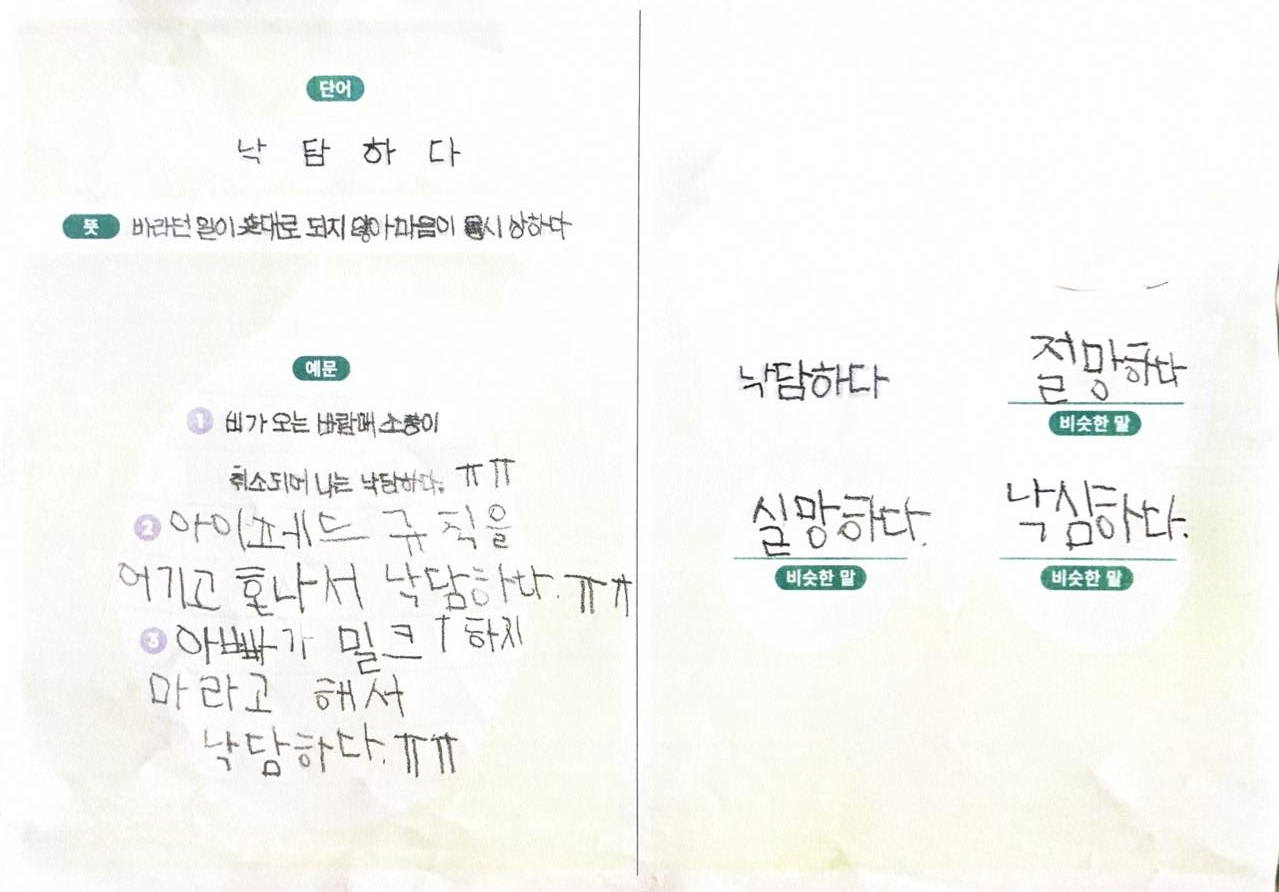 단어
낙담하다
뜻 바라던 일이 뜻대로 되지 않아 마음이 몹시 상하다
예문
1 비가 오는 바람에 소풍이
취소되어 나는 낙담하다. ㅠㅠ
2 아이패드 규칙을
어기고 혼나서 낙담하다. ㅠㅠ
3 아빠가 밀크 하지
마라고 해서
낙담하다. ㅠㅠ
낙담하다
절망하다
비슷한 말
실망하다.
비슷한 말
낙심하다.
비슷한 말